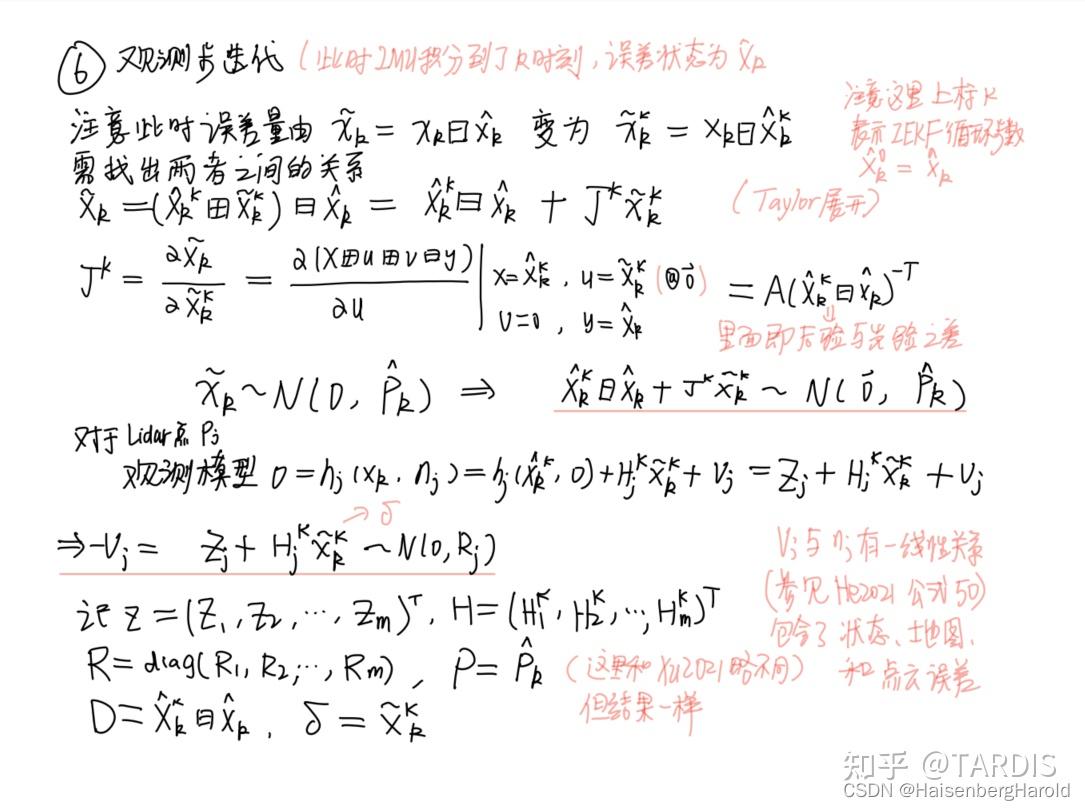 ⑥ 观测步迭代 (此时IMU积分到了k时刻, 误差状态为 x̂_k
注意此时误差量由 x̃_k = x_k ⊟ x̂_k 变为 x̃_k^κ = x_k ⊟ x̂_k^κ
注意这里上标κ
表示IEKF循环次数
x̂_k^0 = x̂_k
需找出两者之间的关系
x̃_k = (x̂_k^κ ⊞ x̃_k^κ) ⊟ x̂_k = x̂_k^κ ⊟ x̂_k + J^κ x̃_k^κ (Taylor展开)
J^κ = ∂x̃_k / ∂x̃_k^κ = ∂(x ⊞ u ⊞ v ⊟ y) / ∂u | x = x̂_k^κ, u = x̃_k^κ (@0⃗) v = 0, y = x̂_k = A(x̂_k^κ ⊟ x̂_k)^{-T}
里面即后验与先验之差
x̃_k ~ N(0, P̂_k) ⇒ x̂_k^κ ⊟ x̂_k + J^κ x̃_k^κ ~ N(0⃗, P̂_k)
对于Lidar点 P_j
观测模型 0 = h_j(x_k, n_j) = h_j(x̂_k^κ, 0) + H_j^κ x̃_k^κ + v_j = z_j + H_j^κ x̃_k^κ + v_j
→ δ
⇒ -v_j = z_j + H_j^κ x̃_k^κ ~ N(0, R_j)
v_j与n_j有一线性关系
(参见He2021公式50)
包含了状态、地图、
和点云误差
记 z = (z_1, z_2, ..., z_m)^T, H = (H_1^κ, H_2^κ, ..., H_m^κ)^T
R = diag(R_1, R_2, ..., R_m), P = P̂_k (这里和Xu2021略不同)
但结果一样
D = x̂_k^κ ⊟ x̂_k, δ = x̃_k^κ
知乎 @TARDIS
CSDN @HaisenbergHarold